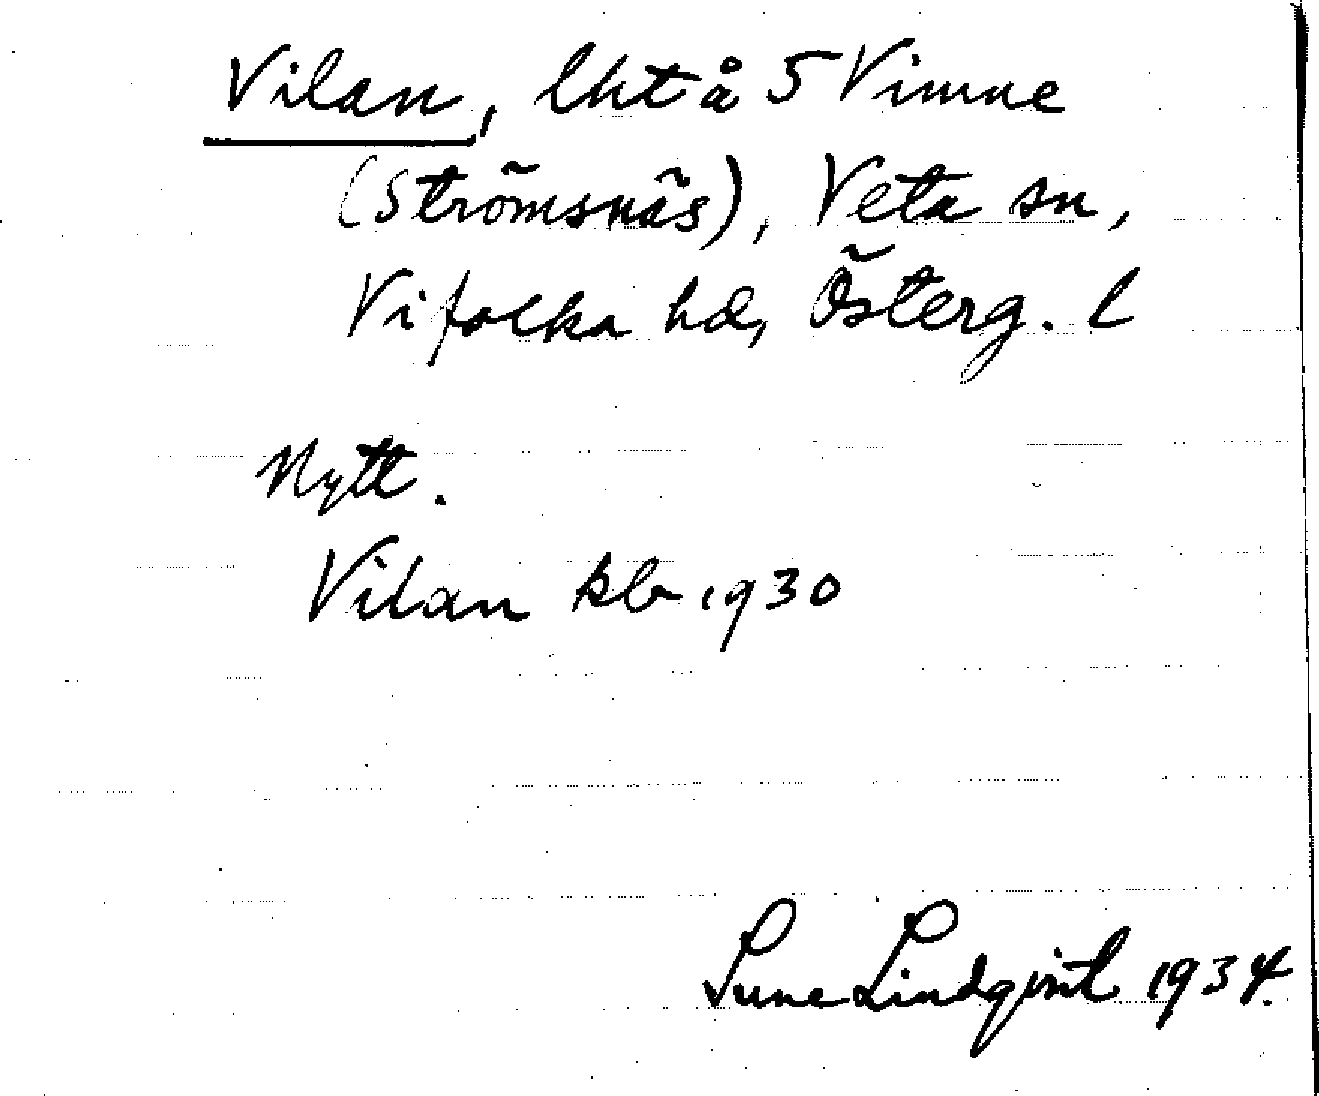 Vilan, lht å 5 Vimne
(Strömsnäs), Veta sn,
Vifolka hd, Österg. l
Nytt.
Vilan kb 1930
Sune Lindqvist 1934.